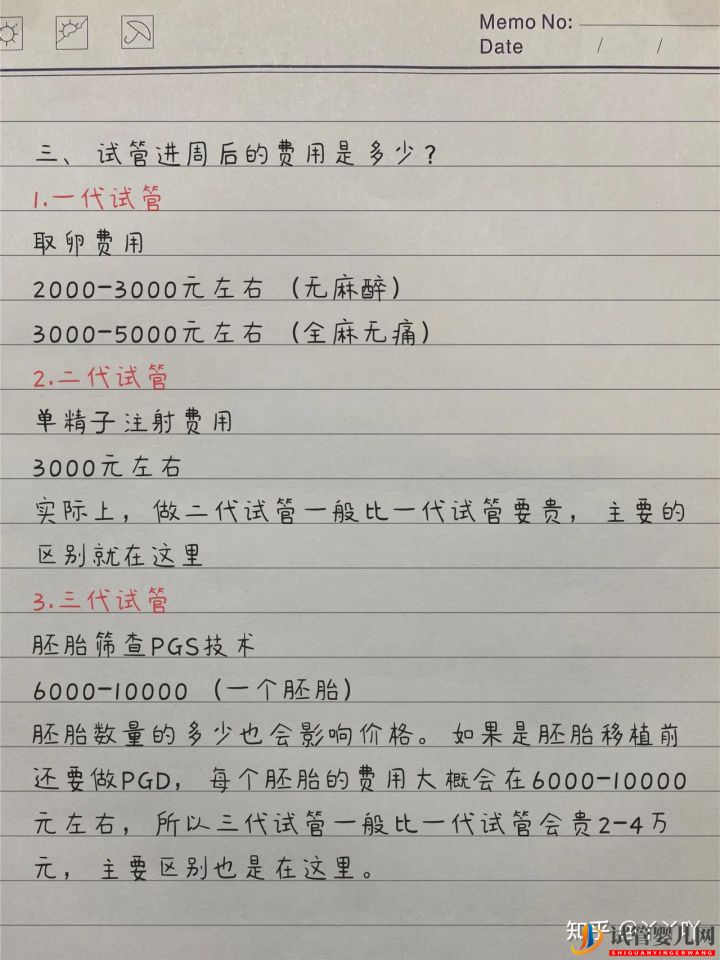 Memo No:
Date / /
三、试管进周后的费用是多少？
1.一代试管
取卵费用
2000-3000元左右（无麻醉）
3000-5000元左右（全麻无痛）
2.二代试管
单精子注射费用
3000元左右
实际上，做二代试管一般比一代试管要贵，主要的
区别就在这里
3.三代试管
胚胎筛查PGS技术
6000-10000（一个胚胎）
胚胎数量的多少也会影响价格。如果是胚胎移植前
还要做PGD，每个胚胎的费用大概会在6000-10000
元左右，所以三代试管一般比一代试管会贵2-4万
元，主要区别也是在这里。
知乎
试管婴儿网
SHIGUANYINGERWANG